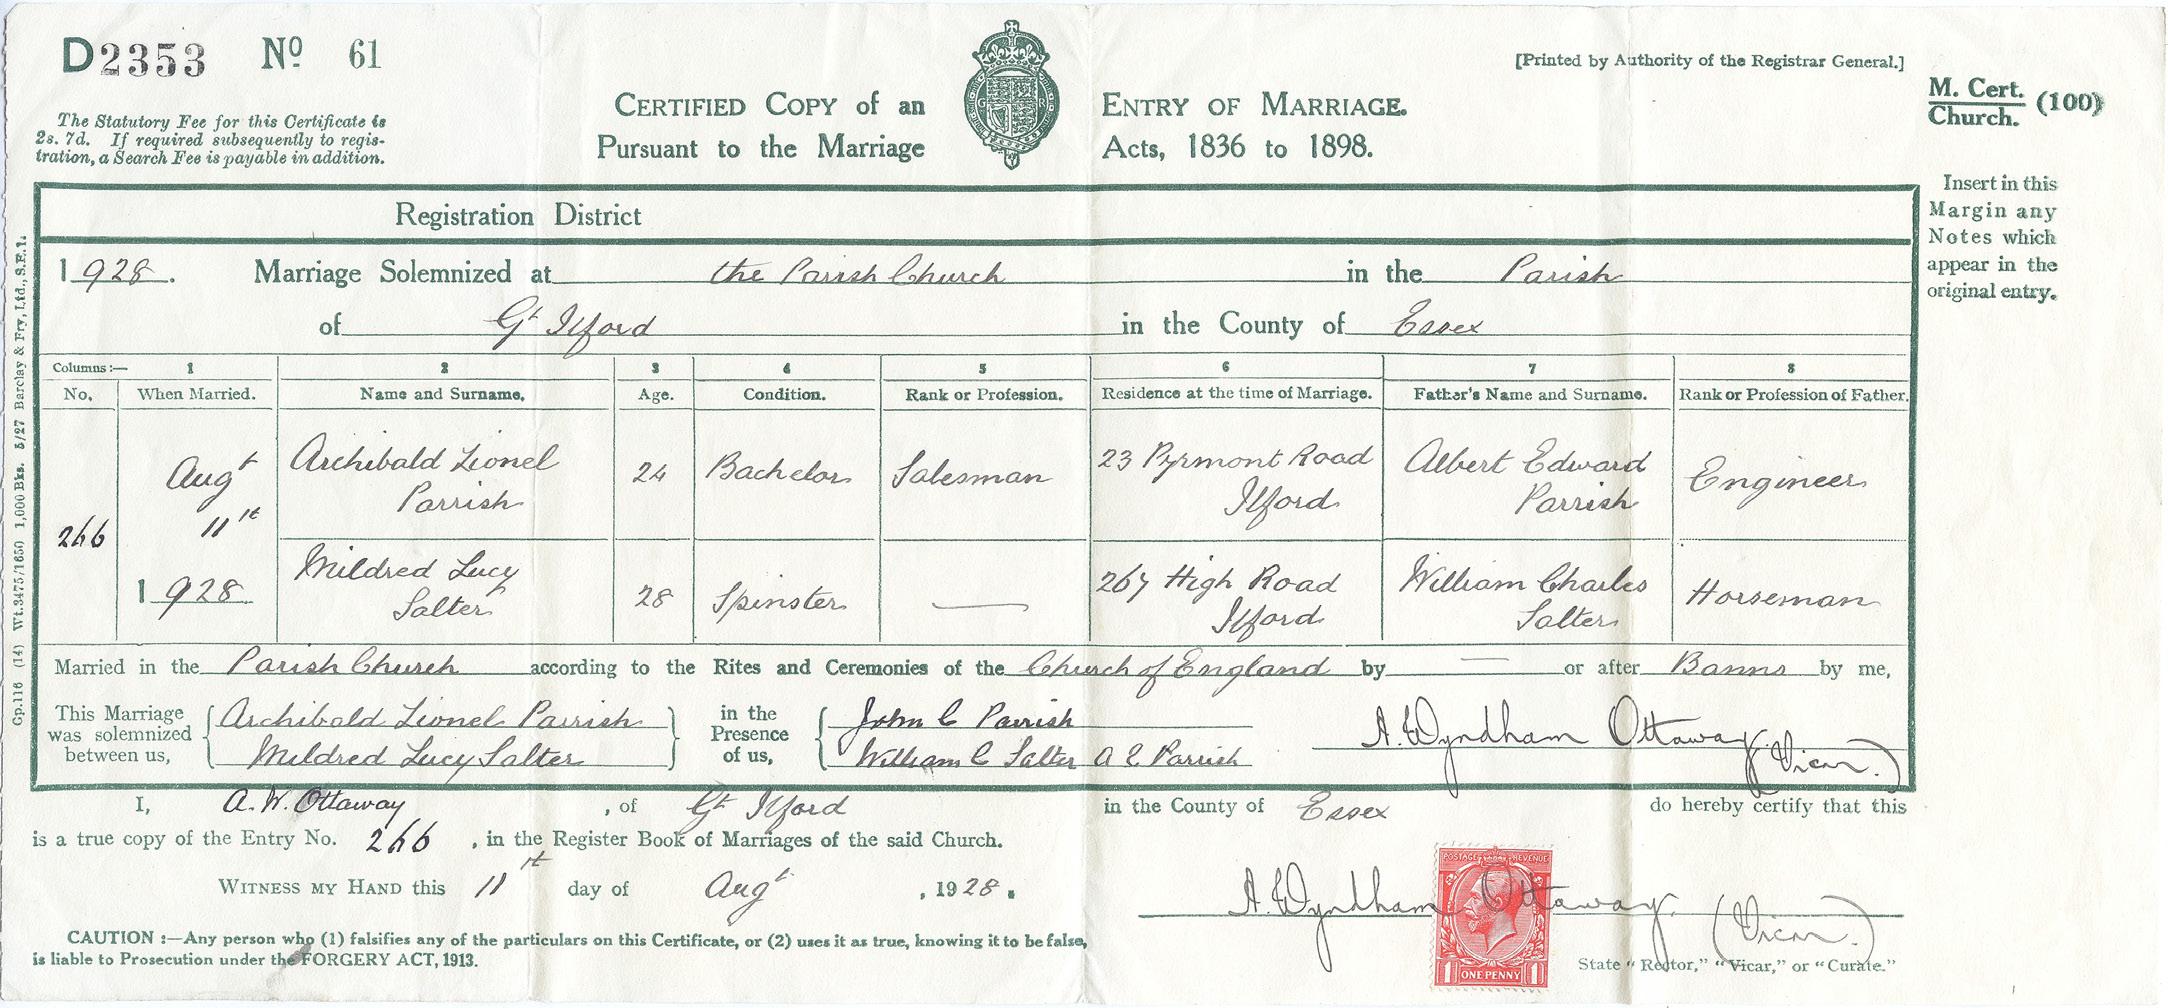 D2353 Nº 61
[Printed by Authority of the Registrar General.]
M. Cert.
Church. (100)
The Statutory Fee for this Certificate is
2s. 7d. If required subsequently to regis-
tration, a Search Fee is payable in addition.
CERTIFIED COPY of an ENTRY OF MARRIAGE.
Pursuant to the Marriage Acts, 1836 to 1898.
G R
Insert in this
Margin any
Notes which
appear in the
original entry.
Gp.116 (14) Wt.3475/1650 1,000 Bks. 5/27 Barclay & Fry, Ltd., S.E.1.
Registration District
1928. Marriage Solemnized at the Parish Church in the Parish
of Gt Ilford in the County of Essex
Columns:— 1 2 3 4 5 6 7 8
No. When Married. Name and Surname. Age. Condition. Rank or Profession. Residence at the time of Marriage. Father's Name and Surname. Rank or Profession of Father.
266 Augt 11th 1928
Archibald Lionel Parrish 24 Bachelor Salesman 23 Pyrmont Road Ilford Albert Edward Parrish Engineer
Mildred Lucy Salter 28 Spinster — 267 High Road Ilford William Charles Salter Horseman
Married in the Parish Church according to the Rites and Ceremonies of the Church of England by — or after Banns by me,
This Marriage was solemnized between us, Archibald Lionel Parrish
Mildred Lucy Salter
in the Presence of us, John C Parrish
William C Salter A E Parrish
A. Wyndham Ottaway (Vicar.)
I, A. W. Ottaway, of Gt Ilford in the County of Essex do hereby certify that this
is a true copy of the Entry No. 266, in the Register Book of Marriages of the said Church.
WITNESS MY HAND this 11th day of Augt, 1928.
A. Wyndham Ottaway. (Vicar.)
POSTAGE REVENUE
1 ONE PENNY 1
State "Rector," "Vicar," or "Curate."
CAUTION :—Any person who (1) falsifies any of the particulars on this Certificate, or (2) uses it as true, knowing it to be false,
is liable to Prosecution under the FORGERY ACT, 1913.